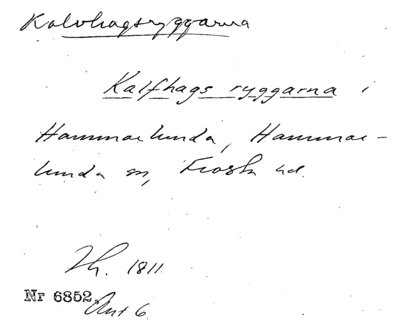 Kalvhagsryggarna
Kalfhags ryggarna i
Hammarlunda, Hammar-
lunda sn, Frosta hd.
Lh. 1811
Nr 6852, Akt 6.